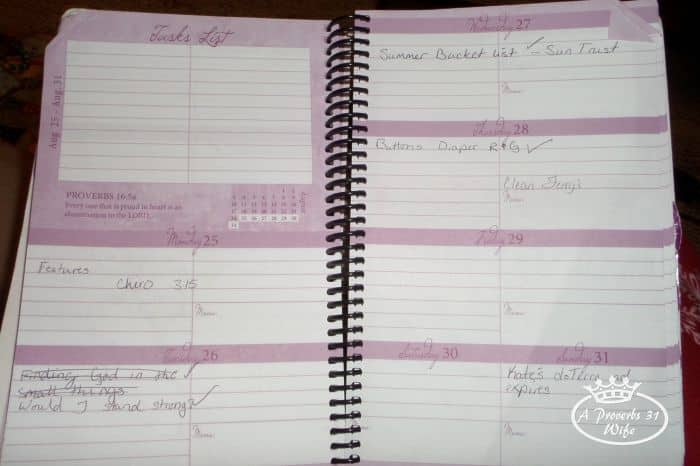 Tasks List
Aug. 25 - Aug. 31
PROVERBS 16:5a
Every one that is proud in heart is an
abomination to the LORD.
August
Monday 25
Features
Chiro 3:15
Menu:
Tuesday 26
Finding God in the
small things.
Would I stand strong?
Menu:
Wednesday 27
Summer Bucket List - Sun Trust
Menu:
Thursday 28
Buttons Diaper R & G
Clean Terry's
Menu:
Friday 29
Menu:
Saturday 30
Sunday 31
Kate's doTerra
expires
A Proverbs 31
Wife